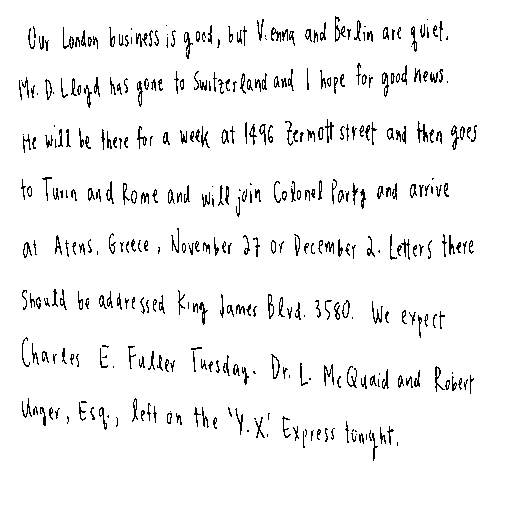 Our London business is good, but Vienna and Berlin are quiet.
Mr. D. Lloyd has gone to Switzerland and I hope for good news.
He will be there for a week at 1496 Zermott street and then goes
to Turin and Rome and will join Colonel Party and arrive
at Atens, Greece, November 27 or December 2. Letters there
Should be addressed King James Blvd. 3580. We expect
Charles E. Fuller Tuesday. Dr. L. McQuaid and Robert
Unger, Esq., left on the 'Y.X.' Express tonight.